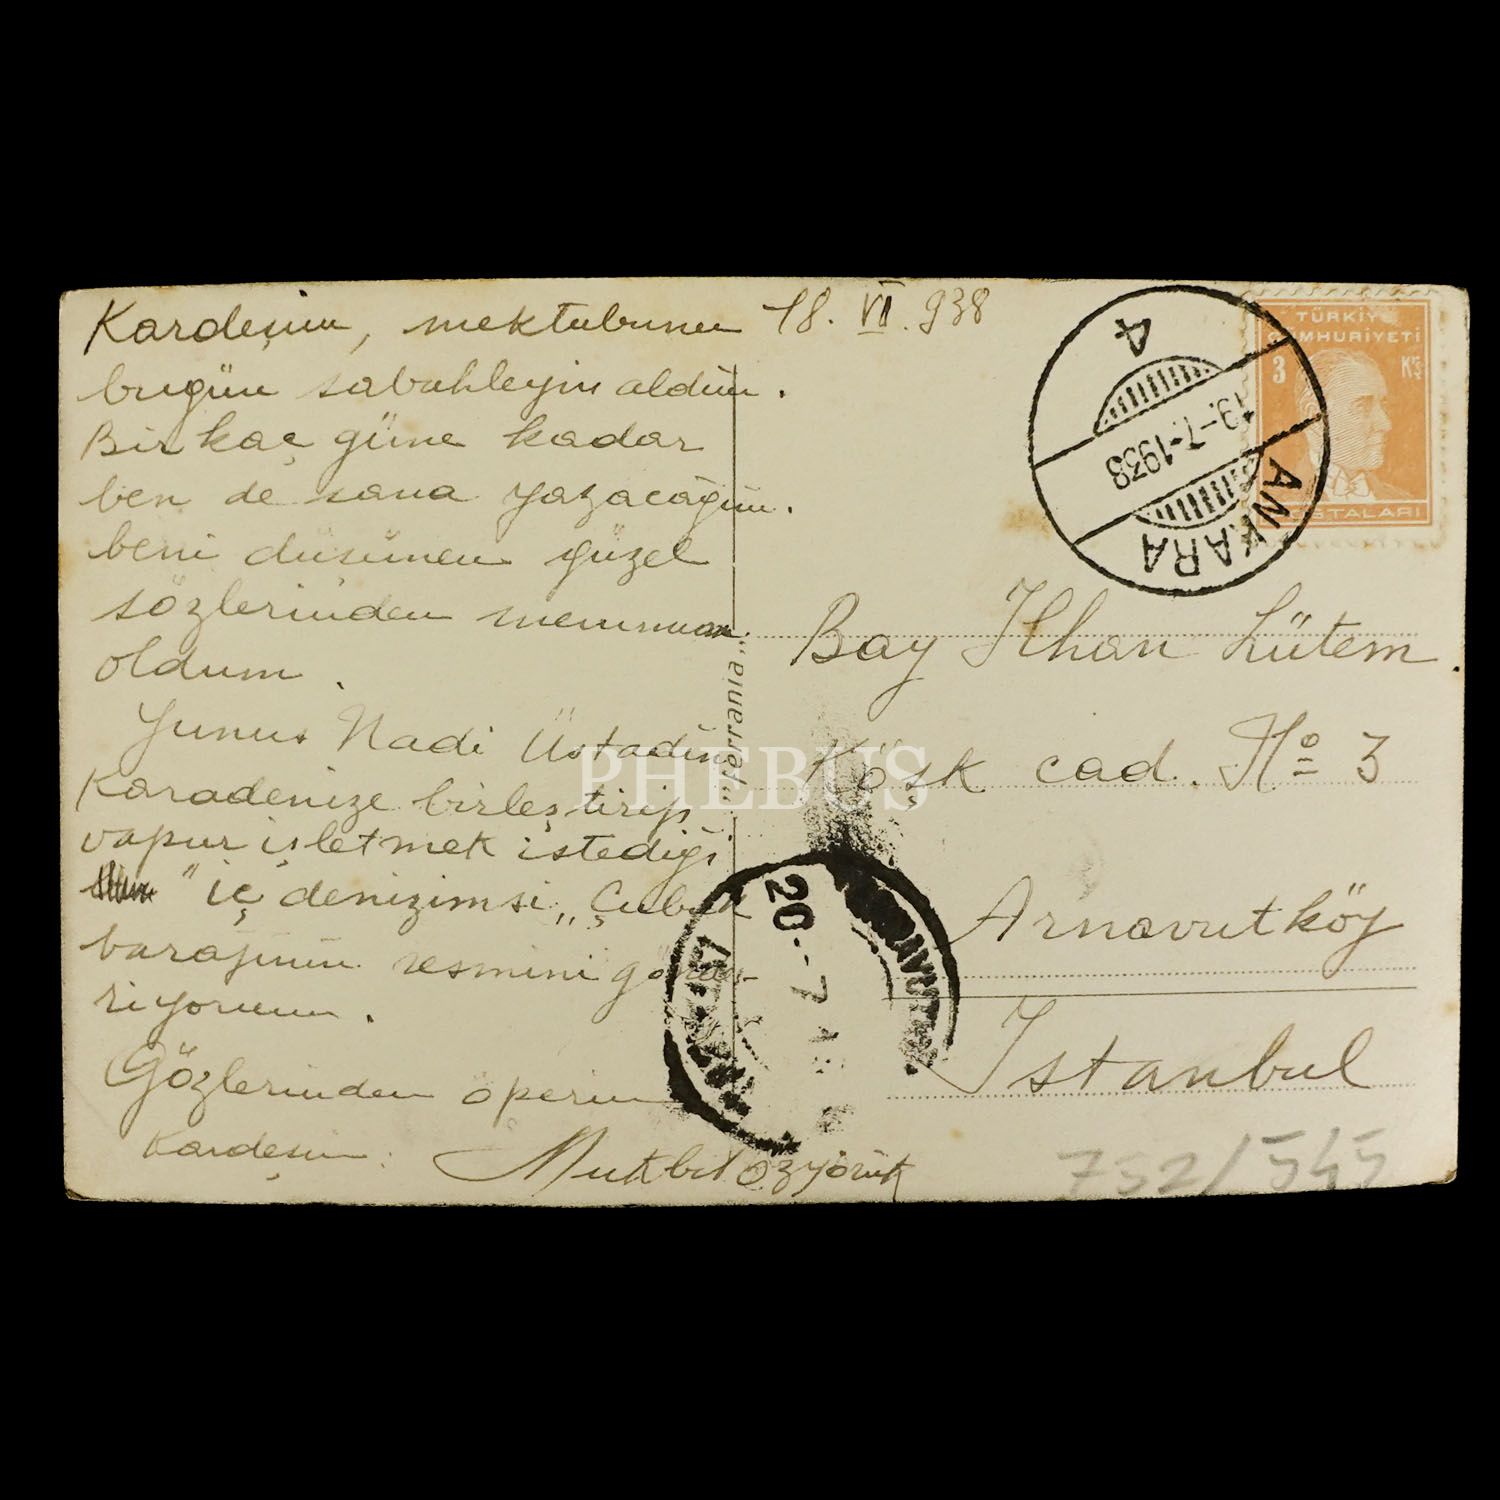 Kardeşim, mektubunu 18. VII. 938
bugün sabahleyin aldım.
Bir kaç güne kadar
ben de sana yazacağım.
beni düşünen güzel
sözlerinden memnun
oldum.
Yunus Nadi Üstadın
Karadenize birleştirip
vapur işletmek istediği
"iç denizimsi„ Çubuk
barajının resmini gönde-
riyorum.
Gözlerinden öperim
Kardeşin:
Özyörük
"ferrania„
TÜRKİYE
CÜMHURİYETİ
3 Krş
POSTALARI
4
19.-7.-1938
ANKARA
Bay İlhan Lütem.
Köşk cad. No 3
Arnavutköy
İstanbul
20.-7
752/545
PHEBUS